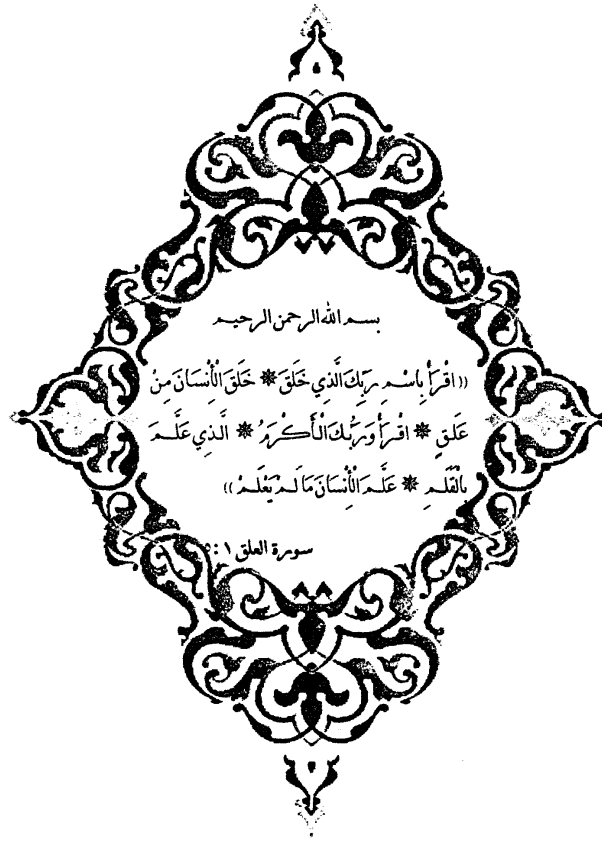 بسم الله الرحمن الرحيم
((اقْرَأْ بِاسْمِ رَبِّكَ الَّذِي خَلَقَ ❋ خَلَقَ الْأِنسَانَ مِنْ
عَلَقٍ ❋ اقْرَأْ وَرَبُّكَ الْأَكْرَمُ ❋ الَّذِي عَلَّمَ
بِالْقَلَمِ ❋ عَلَّمَ الْأِنسَانَ مَا لَمْ يَعْلَمْ))
سورة العلق ١:٥